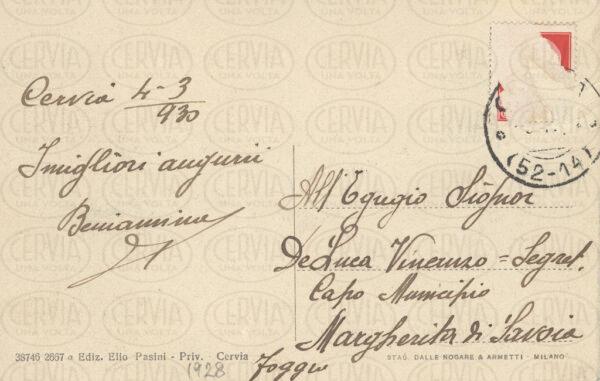 Cervia 4-3
930
I migliori augurii
Beniamino
All'Egregio Signor
De Luca Vincenzo = Segret.
Capo Municipio
Margherita di Savoia
Foggia
(52-14)
38746 2667 a Ediz. Elio Pasini - Priv. Cervia
1928
STAB. DALLE NOGARE & ARMETTI - MILANO
CERVIA
UNA VOLTA